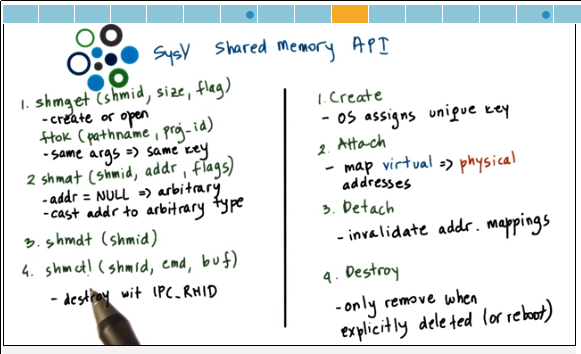 SysV Shared Memory API
1. shmget (shmid, size, flag)
- create or open
ftok (pathname, proj-id)
- same args => same key
2 shmat (shmid, addr, flags)
- addr = NULL => arbitrary
- cast addr to arbitrary type
3. shmdt (shmid)
4. shmctl (shmid, cmd, buf)
- destroy wit IPC_RMID
1. Create
- OS assigns unique key
2. Attach
- map virtual => physical
addresses
3. Detach
- invalidate addr. mappings
4. Destroy
- only remove when
explicitly deleted (or reboot)